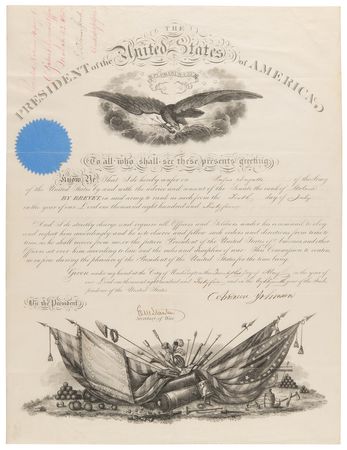 THE
PRESIDENT of the United States of AMERICA,
To all who shall see these presents greeting:
Know Ye, That I do hereby confer on Rufus of the Army
of the United States by and with the advice and consent of the Senate the rank of
BY BREVET, in said army to rank as such from the day of July
in the year of our Lord one thousand eight hundred and
And I do strictly charge and require all Officers and Soldiers under his command to obey
and respect him accordingly; and he is to observe and follow such orders and directions from time to
time, as he shall receive from me or the future President of the United States of America and other
Officers set over him according to law and the rules and discipline of war. This Commission to continue
in force during the pleasure of the President of the United States for the time being.
Given under my hand at the City of Washington the day of May in the year of
our Lord one thousand eight hundred and sixty and in the year of the Inde-
pendence of the United States.
By the President
Andrew Johnson
Secretary of War